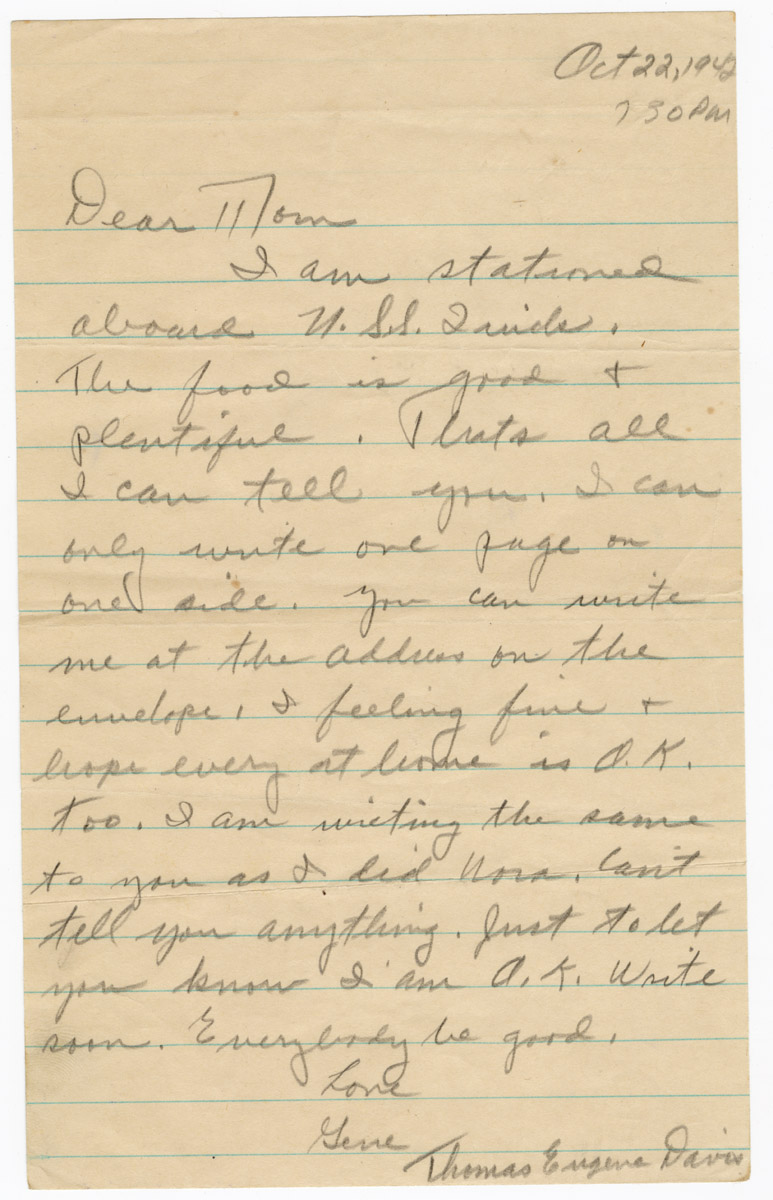 Oct 22, 1942
7 30 PM
Dear Mom
I am stationed
aboard U.S.S.
The food is good &
plentiful. Thats all
I can tell you. I can
only write one page on
one side. You can write
me at the address on the
envelope. I feeling fine &
hope every at home is O.K.
too. I am writing the same
to you as I did Nora. Can't
tell you anything. Just to let
you know I am O.K. Write
soon. Everybody be good.
Love
Gene
Thomas Eugene Davis